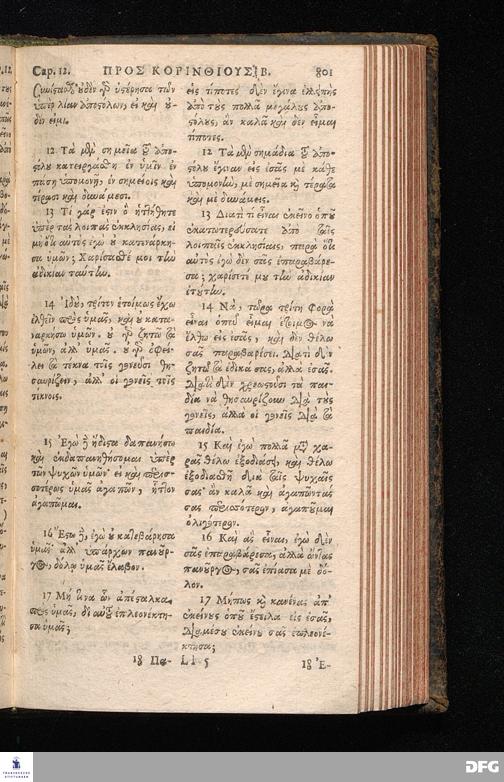 Cap. 12. ΠΡΟΣ ΚΟΡΙΝΘΙΟΥΣ Β. 801
συνίσταθζ· οὐδὲν γδ ὑστέρησα τῶν
ὑπὲρ λίαν ἀποστόλων, εἰ καὶ οὐ-
δέν εἰμι.
12 Τὰ μὲν σημεῖα τοῦ ἀπο-
στόλου κατειργάσθη ἐν ὑμῖν ἐν
πάσῃ ὑπομονῇ, ἐν σημείοις καὶ
τέρασι καὶ δυνάμεσι.
13 Τί γάρ ἐστιν ὃ ἡττήθητε
ὑπὲρ τὰς λοιπὰς ἐκκλησίας, εἰ
μὴ ὅτι αὐτὸς ἐγὼ οὐ κατενάρκη-
σα ὑμῶν; χαρίσασθέ μοι τὴν
ἀδικίαν ταύτην.
14 Ἰδοὺ, τρίτον ἑτοίμως ἔχω
ἐλθεῖν πρὸς ὑμᾶς, καὶ οὐ κατα-
ναρκήσω ὑμῶν. οὐ γδ ζητῶ τὰ
ὑμῶν, ἀλλ' ὑμᾶς. οὐ γδ ὀφεί-
λει τὰ τέκνα τοῖς γονεῦσι θη-
σαυρίζειν, ἀλλ' οἱ γονεῖς τοῖς
τέκνοις.
15 Ἐγὼ δὲ ἥδιστα δαπανήσω
καὶ ἐκδαπανηθήσομαι ὑπὲρ
τῶν ψυχῶν ὑμῶν· εἰ καὶ περισ-
σοτέρως ὑμᾶς ἀγαπῶν, ἧττον
ἀγαπῶμαι.
16 Ἔστω δὲ, ἐγὼ οὐ κατεβάρησα
ὑμᾶς· ἀλλ' ὑπάρχων πανοῦρ-
γος, δόλῳ ὑμᾶς ἔλαβον.
17 Μή τινα ὧν ἀπέσταλκα
πρὸς ὑμᾶς, δι' αὐτοῦ ἐπλεονέκτη-
σα ὑμᾶς;
18 Πα-
εἰς τίποτες δὲν ἔγινα ἐλλιπὴς
ἀπὸ τοὺς πολλὰ μεγάλους ἀπο-
στόλους, ἂν καλὰ καὶ δὲν εἶμαι
τίποτες.
12 Τὰ μὲν σημάδια τοῦ ἀπο-
στόλου ἔγιναν εἰς ἐσᾶς μὲ κάθε
ὑπομονὴν, μὲ σημεῖα καὶ τέρατα
καὶ μὲ δυνάμεις.
13 Διατὶ τί εἶναι ἐκεῖνο ὁποῦ
ἐκατωτερεύσατε ἀπὸ ταῖς
λοιπαῖς ἐκκλησίαις, παρὰ ὅτι
αὐτὸς ἐγὼ δὲν σᾶς ἐπαραβάρε-
σα; χαρίστέ μου τὴν ἀδικίαν
ἐτούτην.
14 Νὰ, τώρα τρίτη φορὰ
εἶναι ὁποῦ εἶμαι ἕτοιμος νὰ
ἔλθω εἰς ἐσᾶς, καὶ δὲν θέλω
σᾶς παραβαρέσει. Διατὶ δὲν
ζητῶ τὰ ἐδικά σας, ἀλλὰ ἐσᾶς.
Διατὶ δὲν χρεωστοῦσι τὰ παι-
δία νὰ θησαυρίζουν διὰ τοὺς
γονεῖς, ἀλλὰ οἱ γονεῖς διὰ τὰ
παιδία.
15 Καὶ ἐγὼ πολλὰ μετὰ χα-
ρᾶς θέλω ἐξοδιάσει, καὶ θέλω
ἐξοδιασθῆ διὰ ταῖς ψυχαῖς
σας· ἂν καλὰ καὶ ἀγαπῶντας
σας περισσότερον, ἀγαπῶμαι
ὀλιγώτερον.
16 Καὶ ἂς εἶναι, ἐγὼ δὲν
σᾶς ἐπαραβάρεσα, ἀλλὰ ὄντας
πανοῦργος, σᾶς ἐπίασα μὲ δό-
λον.
17 Μήπως καὶ κανένας ἀπ'
ἐκείνους ὁποῦ ἔστειλα εἰς ἐσᾶς,
διὰ μέσου ἐκείνου σᾶς ἐπλεονέ-
κτησα;
Ll 5 18 Ἐ-
DFG